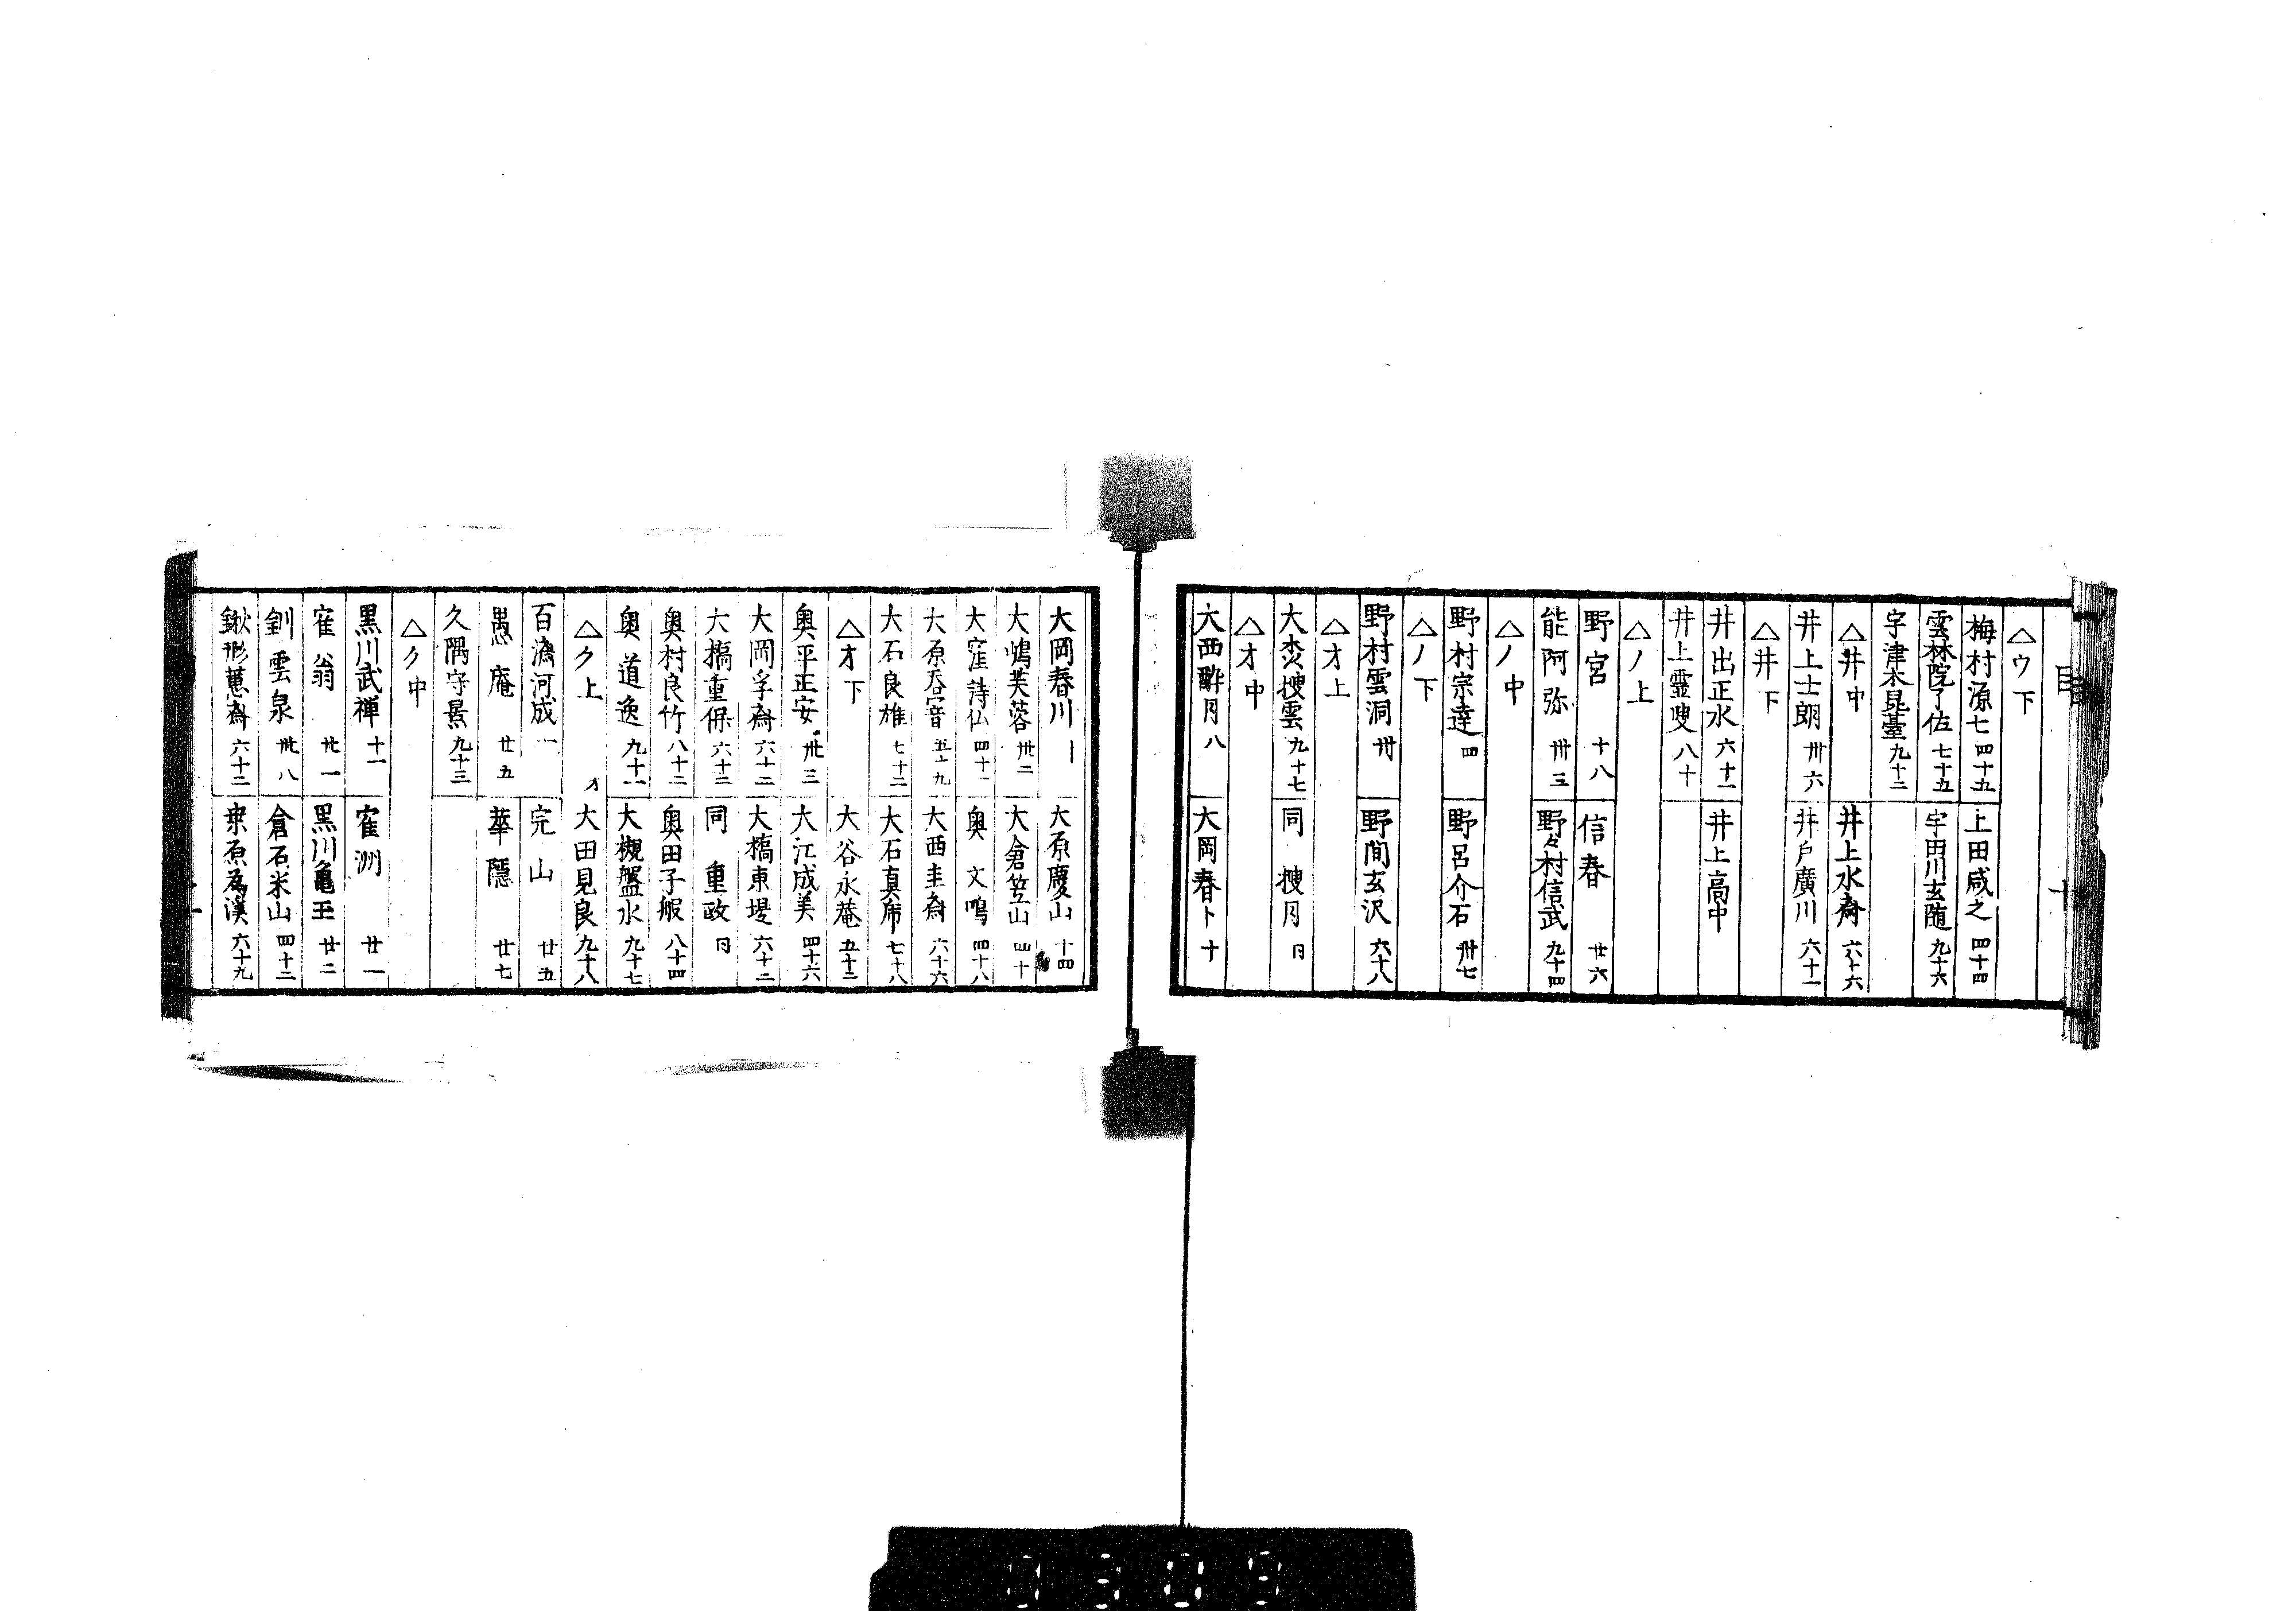 目
十
△ウ下
梅村源七 四十五
上田咸之 四十四
雲林院了佐 七十五
宇田川玄随 九十六
宇津木昆䑓 九十二
△井中
井上水斎 六十六
井上士朗 卅六
井戸廣川 六十一
△井下
井出正水 六十一
井上高中
井上霊叟 八十
△ノ上
野宮 十八
信春 廿六
能阿弥 卅三
野々村信武 九十四
△ノ中
野村宗達 四
野呂介石 卅七
△ノ下
野村雲洞 卅
野間玄沢 六十八
△オ上
大焚捜雲 九十七
同 捜月 同
△オ中
大西酔月 八
大岡春卜 十
大岡春川
大原慶山 十四
大鳷芙蓉 卅二
大倉笠山 四十
大窪詩仏 四十一
奥文鳴 四十八
大原呑窅 五十九
大西圭斎 六十六
大石良雄 七十二
大石真虎 七十八
△オ下
大谷永菴 五十二
奥平正安 卅三
大江成美 四十六
大岡孚斎 六十二
大橋東堤 六十二
大橋重保 六十三
同 重政 同
奥村良竹 八十二
奥田子舩 八十四
奥道逸 九十一
大槻盤水 九十七
△ク上
オ
大田見良 九十八
百済河成 一
完山 廿五
愚庵 廿五
華隠 廿七
久隅守景 九十三
△ク中
黒川武禅 十一
寉洲 廿一
寉翁 卅一
黒川亀玉 廿二
釧雲泉 卅八
倉石米山 四十二
鍬形蕙斎 六十二
桒原為溪 六十九